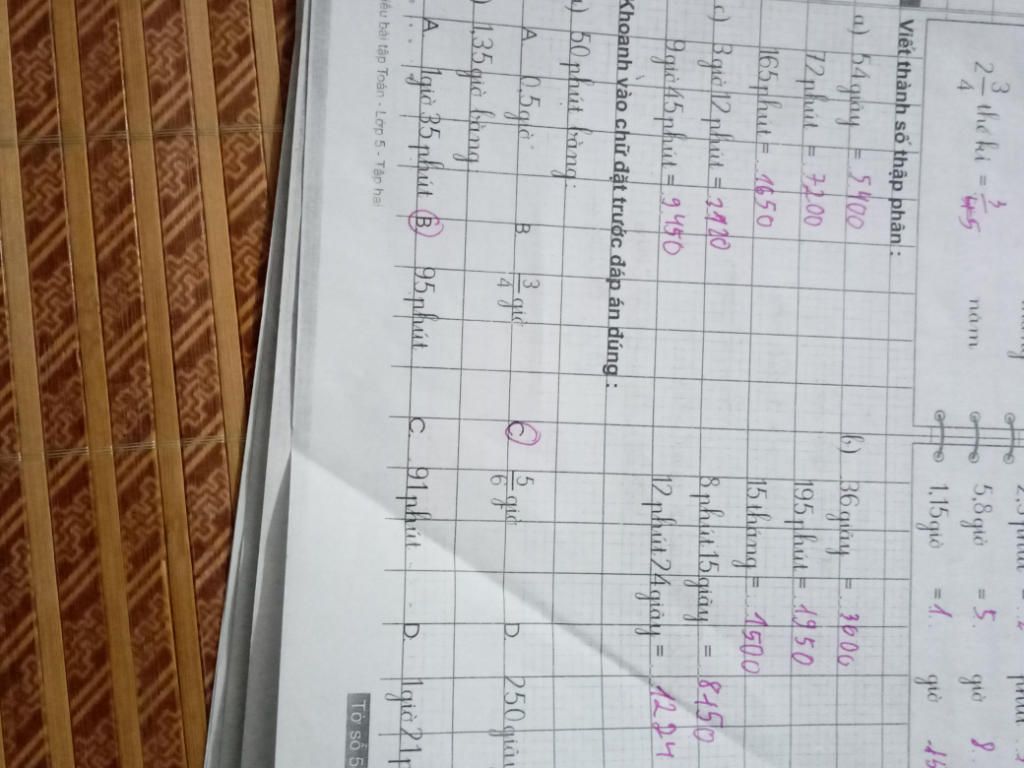 2 3/4 thế kỉ = năm
2.5 phút = phút
5,8 giờ = 5. giờ 8.
1,15 giờ = 1. giờ 15
Viết thành số thập phân :
a) 54 giây = 5400
72 phút = 7200
165 phút = 1650
b) 36 giây = 3600
195 phút = 1950
15 tháng = 1500
c) 3 giờ 12 phút = 3120
9 giờ 45 phút = 9450
8 phút 15 giây = 8150
12 phút 24 giây = 1224
Khoanh vào chữ đặt trước đáp án đúng :
a) 50 phút bằng:
A 0,5 giờ B 3/4 giờ C 5/6 giờ D. 250 giây
) 1,35 giờ bằng
A 1 giờ 35 phút B 95 phút C. 91 phút D. 1 giờ 21 p
iếu bài tập Toán - Lớp 5 - Tập hai
Tờ số 5